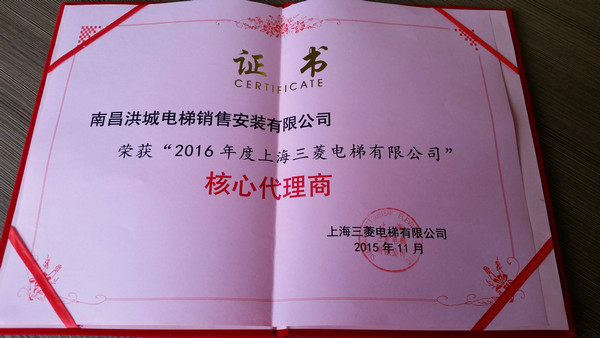 证书
CERTIFICATE
南昌洪城电梯销售安装有限公司
荣获“2016年度上海三菱电梯有限公司”
核心代理商
上海三菱电梯有限公司
2015年11月